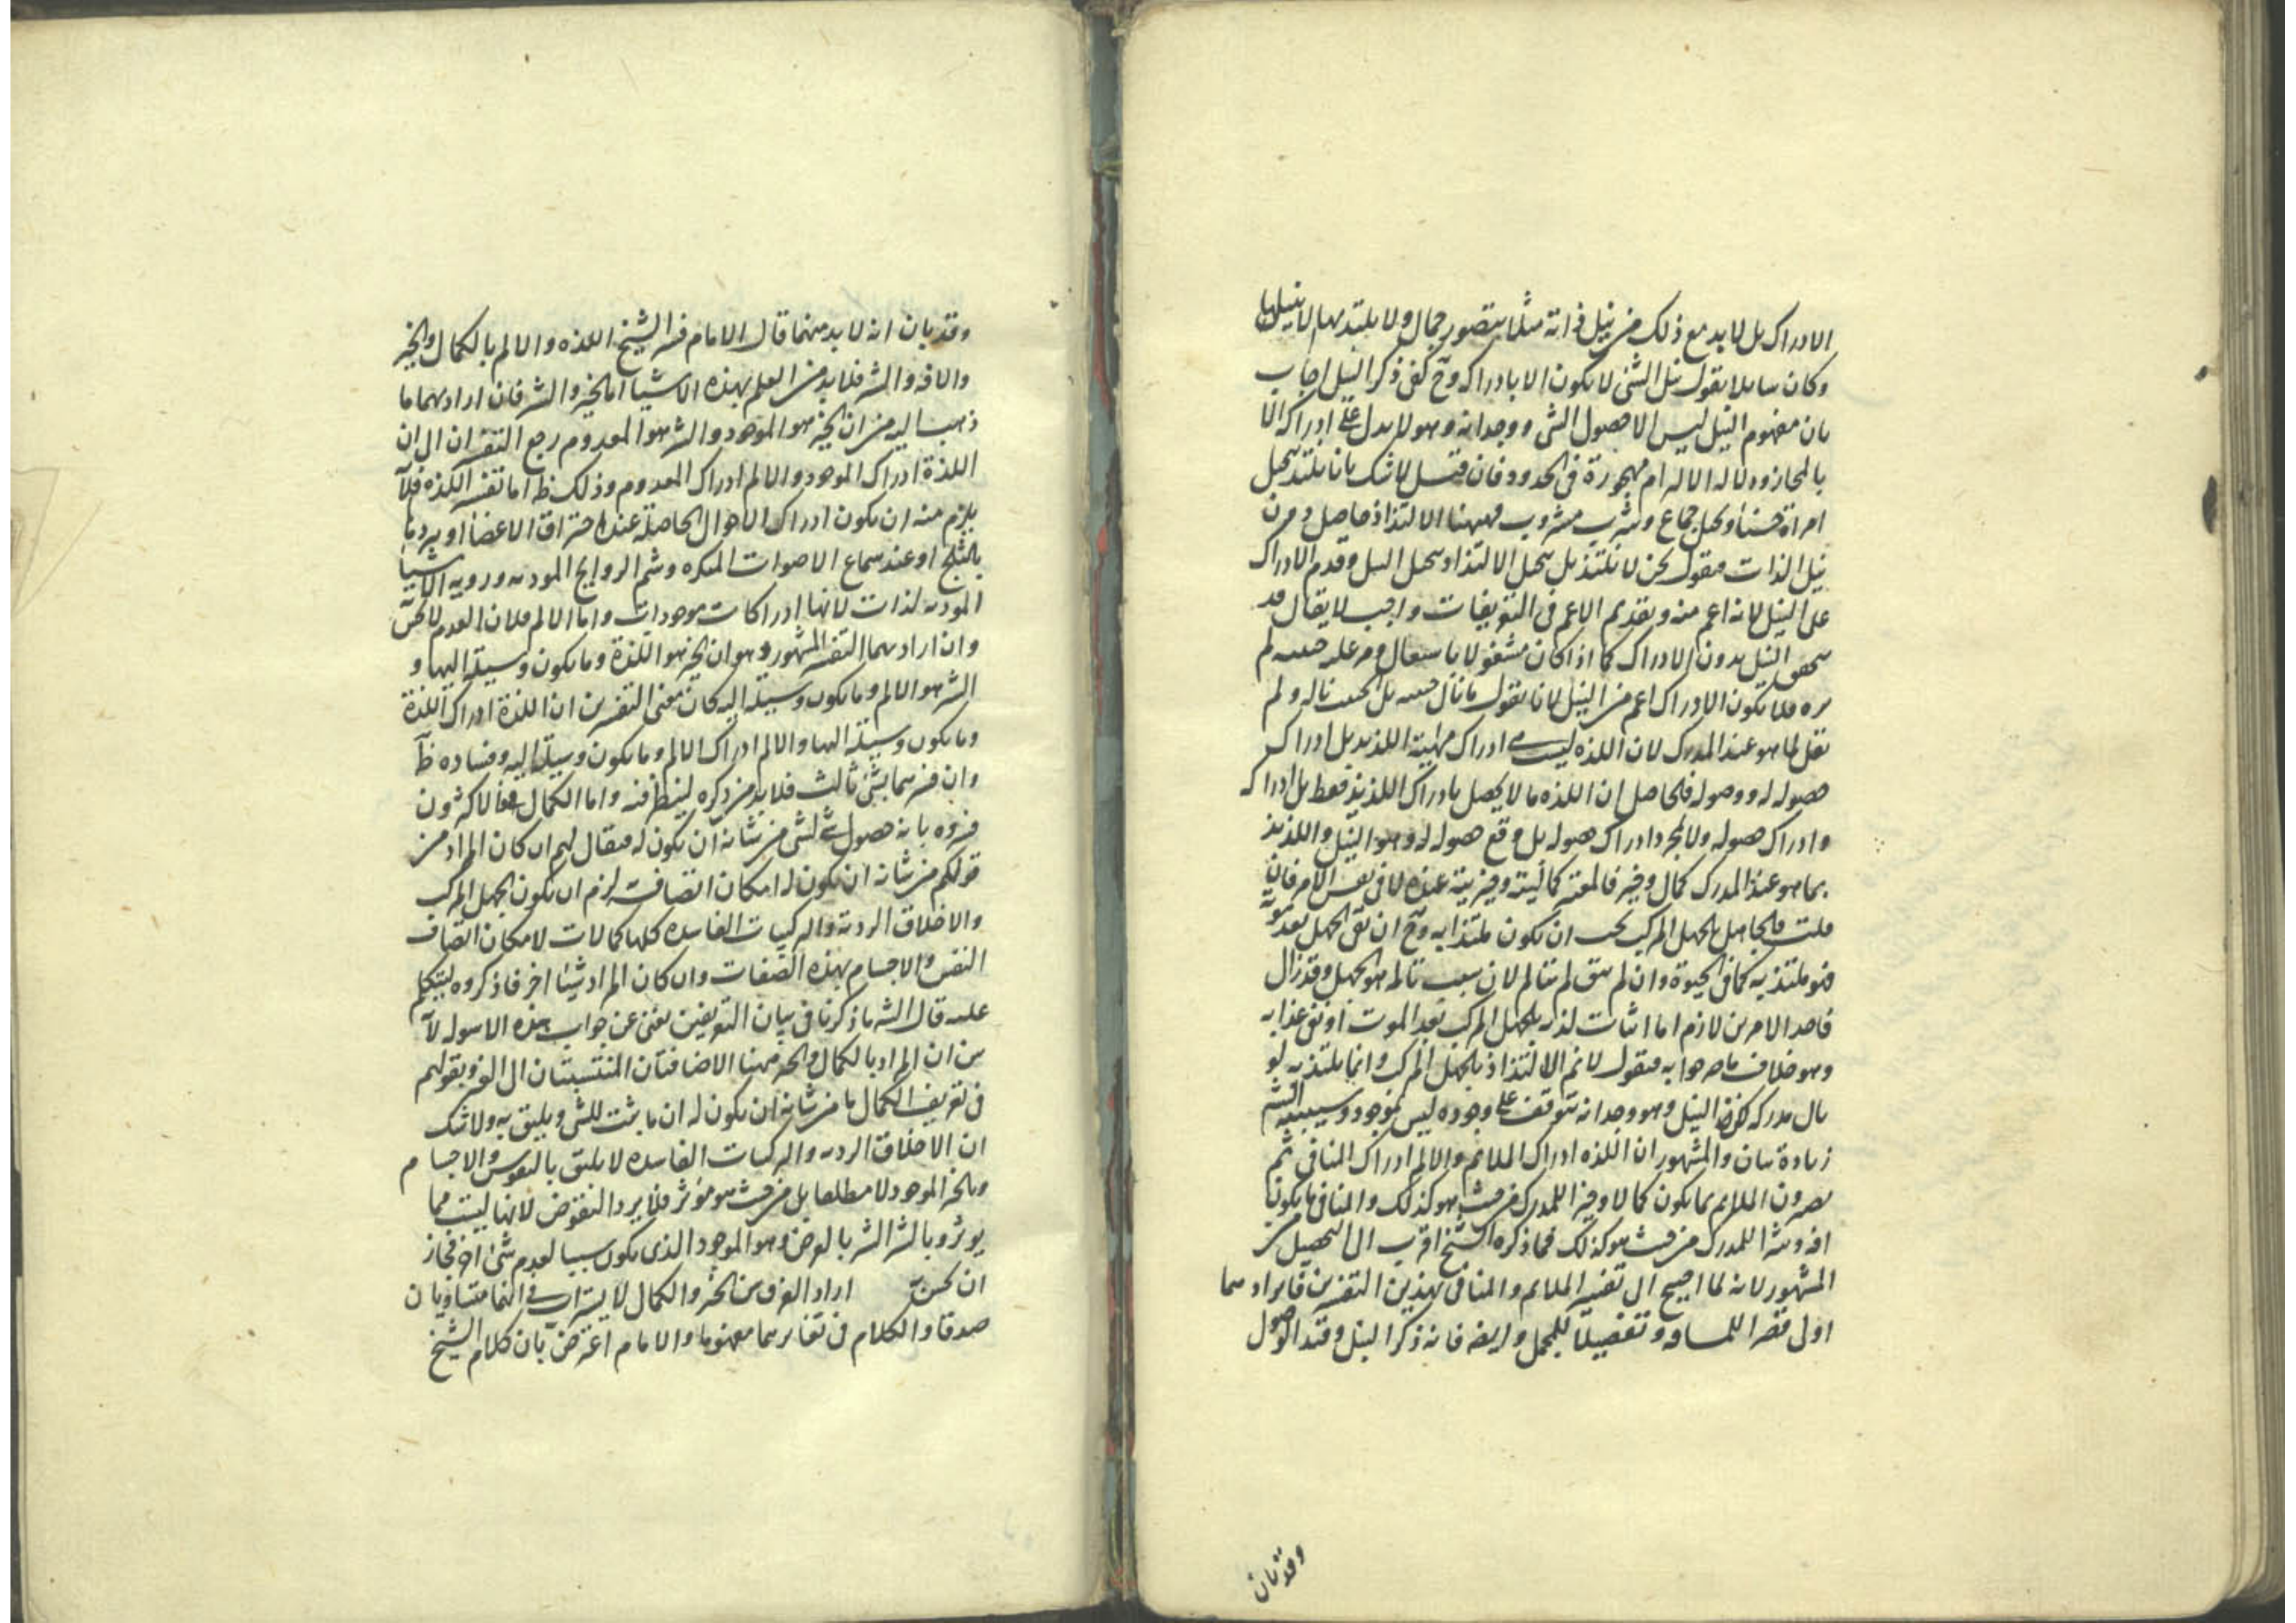 الادراك بل لا بد مع ذلك من نيل ذاته مثلا يتصور جمال ولا يلتذ بها لا بنيلها
وكان سايلا يقول نيل الشئ لا يكون الا بادراكه وح كفى ذكر النيل اجاب
بان مفهوم النيل ليس الا حصول الشئ ووجدانه وهو لا يدل على ادراكه الا
بالمجاز ودلالة الالتزام مهجورة فى الحدود فان قيل لا شك بانا نلتذ بتخيل
امراة حسناء وتخيل جماع وشرب مشروب فههنا الالتذاذ حاصل دون
نيل الذات فنقول نحن لا نلتذ بل بتخيل الالتذاذ وتخيل النيل وقدم الادراك
على النيل لانه اعم منه وتقديم الاعم فى التعريفات واجب لا يقال قد
يتحقق النيل بدون الادراك كما اذا كان مشغولا باشتغال ومر عليه حبيبه لم
يره فلا يكون الادراك اعم من النيل لانا نقول ما نال حبيبه بل الحبيب ناله ولم
نقل لما هو عند المدرك لان اللذة ليست ادراك مهية اللذيذ بل ادراك
حصوله له ووصوله فالحاصل ان اللذه ما لا يحصل بادراك اللذيذ فقط بل ادراكه
وادراك حصوله ولا بمجرد ادراك حصوله بل وقع حصوله له وهو النيل واللذيذ
بما هو عند المدرك كمال وخير فالمعتبر كماليته وخيريته عنده لا فى نفس الامر فان
قلت فالجاهل بالجهل المركب يجب ان يكون ملتذا به وح ان بقى الجهل بعد موته
فهو ملتذ به كما فى الحيوة وان لم يبق لم يتالم لان سبب تالمه هو الجهل وقد زال
فاحد الامرين لازم اما اثبات لذة الجهل المركب بعد الموت او نفى عذابه
وهو خلاف ما صرحوا به فنقول لا نم الالتذاذ بالجهل المركب وانما يلتذ به لو
نال مدركه لكن النيل وهو وجدانه يتوقف على وجوده ليس بموجود وسيبينه الش
زيادة بيان والمشهور ان اللذه ادراك الملائم والالم ادراك المنافى ثم
يفسرون الملايم بما يكون كمالا وخيرا للمدرك من حيث هو كذلك والمنافى ما يكون
افة وشرا للمدرك من حيث هو كذلك فما ذكره الشيخ اقرب الى التحصيل من
المشهور لانه لما احتيج الى تفسير الملايم والمنافى بهذين التفسيرين فايرادهما
اول قصرا للمسافة وتفصيلا للمجمل وايضا فانه ذكر النيل وقيد الوصول
وقد بان
وقد بان انه لا بد منهما قال الامام فسر الشيخ اللذه والالم بالكمال والخير
والافة والشر فلا بد من العلم بهذه الاشيا اما الخير والشر فان اراد بهما ما
ذهب اليه من ان الخير هو الموجود والشر هو المعدوم رجع التفسير ان الى ان
اللذة ادراك الموجود والالم ادراك المعدوم وذلك ظ اما تفسير اللذه فلا
يلزم منه ان يكون ادراك الاحوال الحاصلة عند احتراق الاعضاء او بردها
بالثلج او عند سماع الاصوات المنكره وشم الروايح الموذيه ورويه الاشيا
الموذيه لذات لانها ادراكات موجودات واما الالم فلان العدم لا يحس
وان اراد بهما التفسير المشهور وهو ان الخير هو اللذة وما يكون وسيلة اليها و
الشر هو الالم وما يكون وسيلة اليه كان معنى التفسيرين ان اللذة ادراك اللذة
وما يكون وسيلة اليها والالم ادراك الالم وما يكون وسيلة اليه وفساده ظ
وان فسرهما بشئ ثالث فلا بد من ذكره لينظر فيه واما الكمال فالاكثرون
فسروه بانه حصول شئ لشئ من شانه ان يكون له فيقال لهم ان كان المراد من
قولكم من شانه ان يكون له امكان اتصافه لزم ان يكون الجهل المركب
والاخلاق الرديه والتركيبات الفاسده كلها كمالات لامكان اتصاف
النفس والاجسام بهذه الصفات وان كان المراد شيئا اخر فاذكروه ليتكلم
عليه قال الش ما ذكرنا فى بيان التعريفين يغنى عن جواب هذه الاسوله
من ان المراد بالكمال والخير ههنا الاضافتان المنتسبتان الى الغير وبقولهم
فى تعريف الكمال ما من شانه ان يكون له ان ما يثبت للشئ ويليق به ولا شك
ان الاخلاق الرديه والتركيبات الفاسده لا يليق بالنفوس والاجسام
وبالخير الموجود لا مطلقا بل من حيث هو مؤثر فلا يرد النقوض لانها ليست مما
يوثر وبالشر الشر بالعرض وهو الموجود الذى يكون سببا لعدم شئ اخر فجاز
ان يحس به اراد الفرق بين الخير والكمال لا يستراب فى انهما متساويان
صدقا والكلام فى تغايرهما مفهوما والامام اعترض بان كلام الشيخ